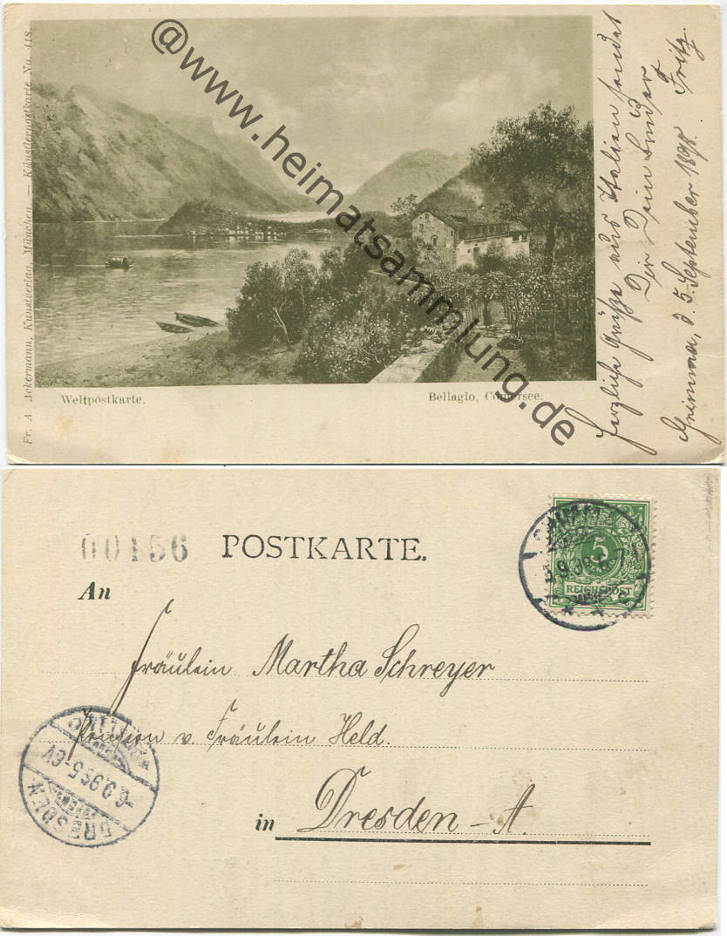 Fr. A. Ackermann, Kunstverlag, München. — Künstlerpostkarte No. 118.
@www.heimatsammlung.de
Weltpostkarte.
Bellagio, Comersee.
Herzliche Grüße aus Italien sendet
Dir Dein Bruder
Fritz.
Grimma, d. 5. September 1898.
00156
POSTKARTE.
5
REICHSPOST
An
Fräulein Martha Schreyer
Pension v. Fräulein Held.
in Dresden - A.
DRESDEN